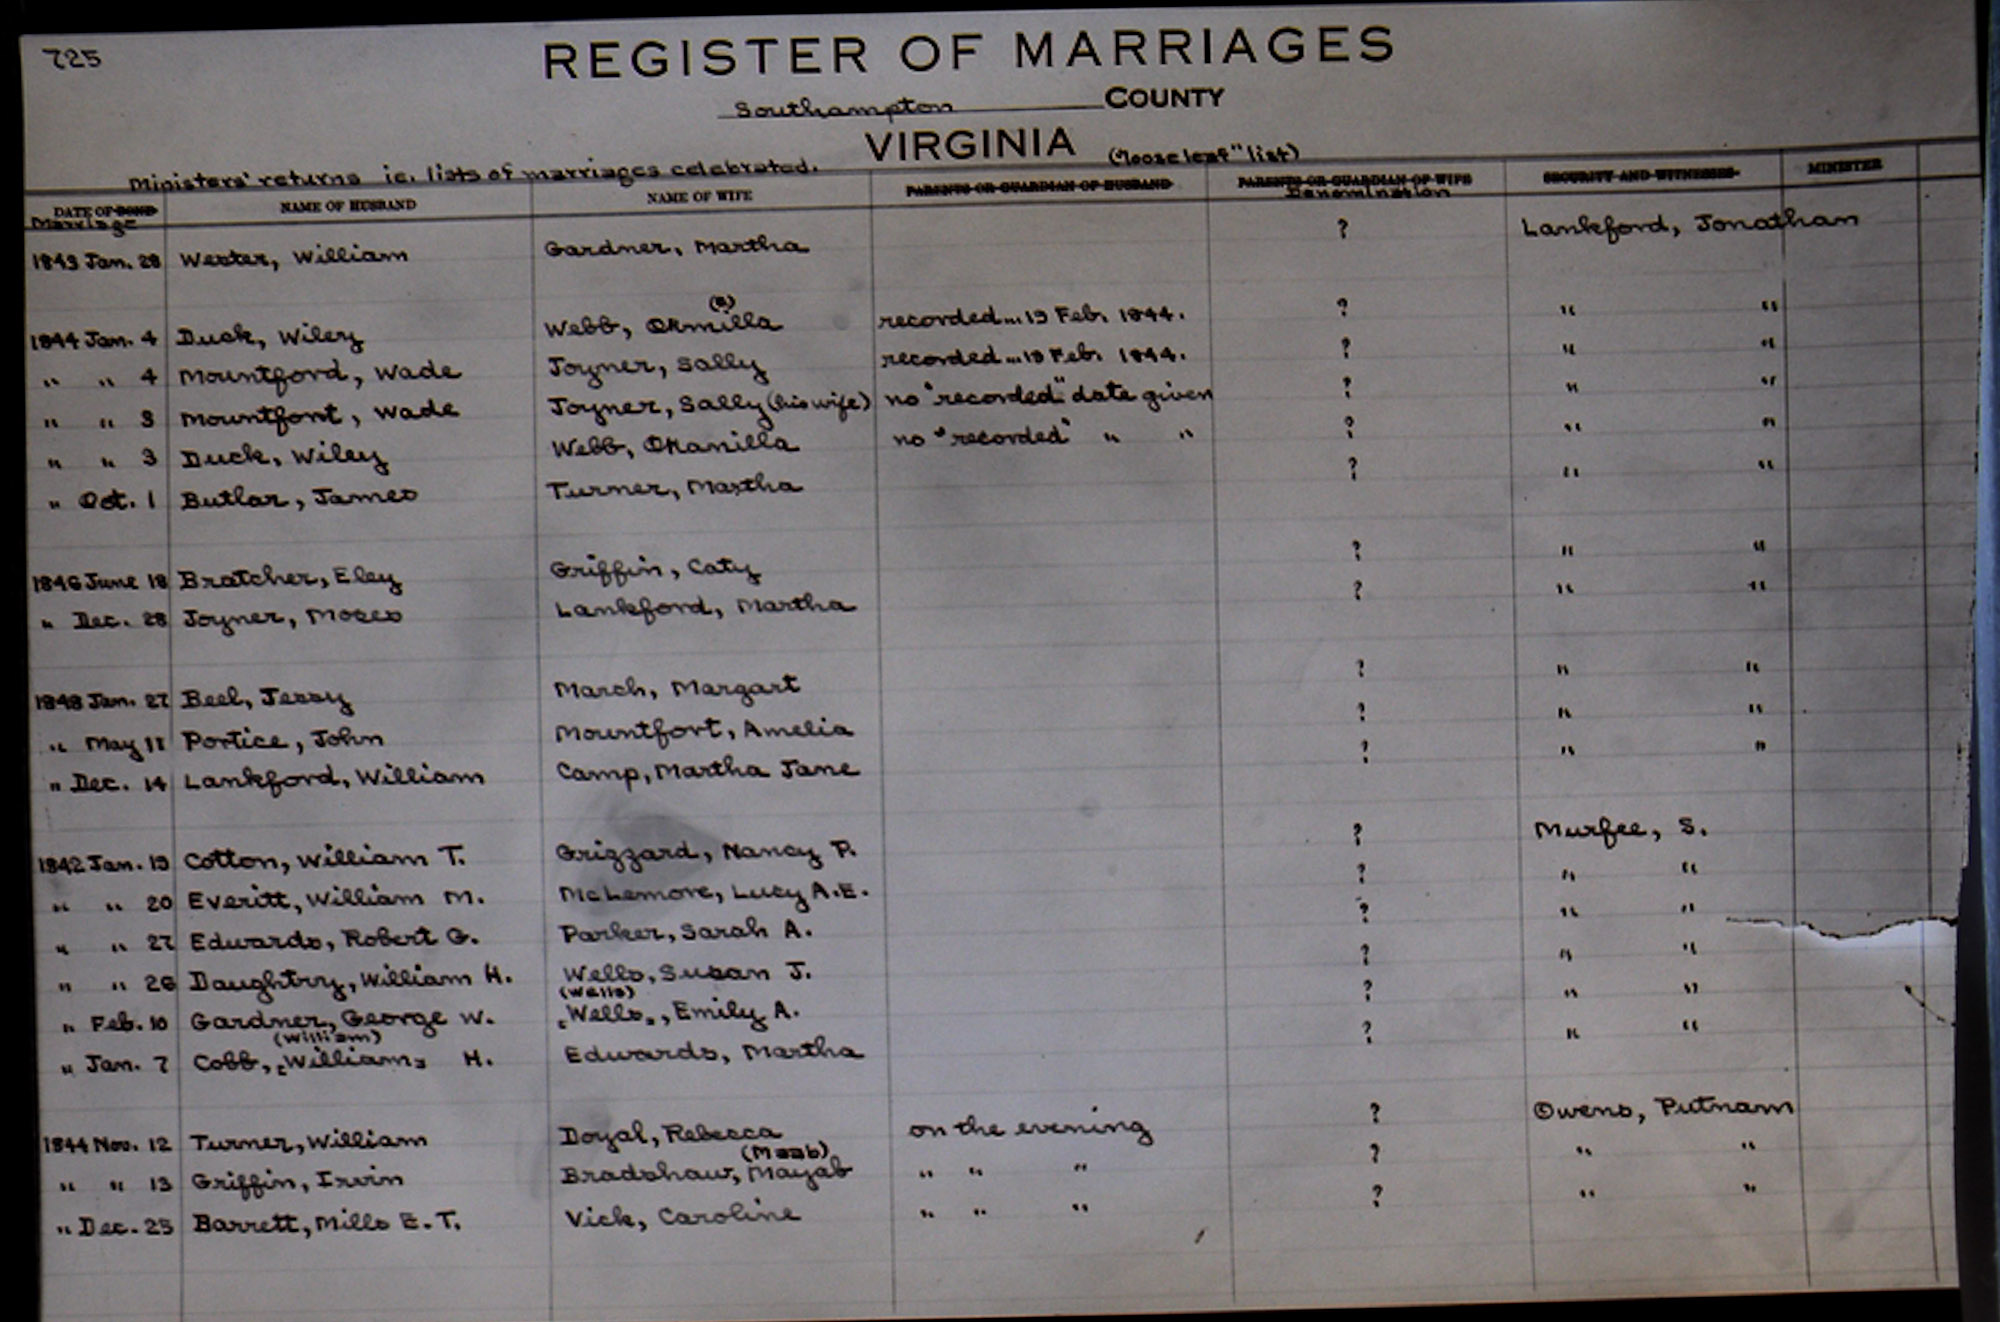 725
REGISTER OF MARRIAGES
Southampton COUNTY
VIRGINIA ("loose leaf" list)
Ministers' returns ie. lists of marriages celebrated.
DATE OF BOND Marriage NAME OF HUSBAND NAME OF WIFE PARENTS OR GUARDIAN OF HUSBAND PARENTS OR GUARDIAN OF WIFE Denomination SECURITY AND WITNESSES MINISTER
1843 Jan. 28 Wester, William Gardner, Martha ? Lankford, Jonathan
1844 Jan. 4 Duck, Wiley Webb, (a) recorded... 19 Feb. 1844. ? " "
" " 4 Mountford, Wade Joyner, Sally recorded... 19 Feb. 1844. ? " "
" " 3 Mountfont, Wade Joyner, Sally (his wife) no "recorded" date given ? " "
" " 3 Duck, Wiley Webb, no "recorded" " " ? " "
" Oct. 1 Butlar, James Turner, Martha ? " "
1846 June 18 Bratcher, Eley Griffin, Caty ? " "
" Dec. 28 Joyner, Moses Lankford, Martha ? " "
1848 Jan. 27 Beel, Jessy March, Margart ? " "
" May 11 Portice, John Mountfort, Amelia ? " "
" Dec. 14 Lankford, William Camp, Martha Jane ? " "
1842 Jan. 19 Cotton, William T. Grizzard, Nancy P. ? Murfee, S.
" " 20 Everitt, William M. McLemore, Lucy A.E. ? " "
" " 27 Edwards, Robert G. Parker, Sarah A. ? " "
" " 26 Daughtry, William H. Wells, Susan J. ? " "
(Wells)
" Feb. 10 Gardner, George W. [Wells], Emily A. ? " "
(William)
" Jan. 7 Cobb, [William] H. Edwards, Martha ? " "
1844 Nov. 12 Turner, William Doyal, Rebecca on the evening ? Owens, Putnam
" " 13 Griffin, Irvin Bradshaw, Mayab " " " ? " "
" Dec. 25 Barrett, Mills E.T. Vick, Caroline " " " ? " "